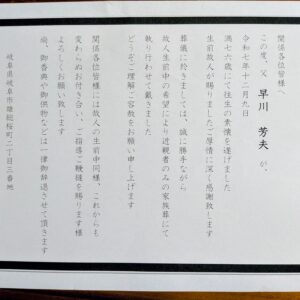 関係各位皆様へ
この度、父 早川 芳夫 が、
令和七年十二月九日
満七六歳にて往生の素懐を遂げました
生前故人が賜りましたご厚情に深く感謝致します
葬儀に終きましては、誠に勝手ながら
故人生前中の希望により近親者のみの家族葬にて
執り行わせて戴きました
どうぞご理解ご容赦をお願い申し上げます
関係各位皆様には故人の生前中同様、これからも
変わらぬお付き合い、ご指導ご鞭撻を賜ります様
よろしくお願い致します
尚、御香典や御供物などは一律御辞退させて頂きます
岐阜県岐阜市雄総桜町二丁目三番地